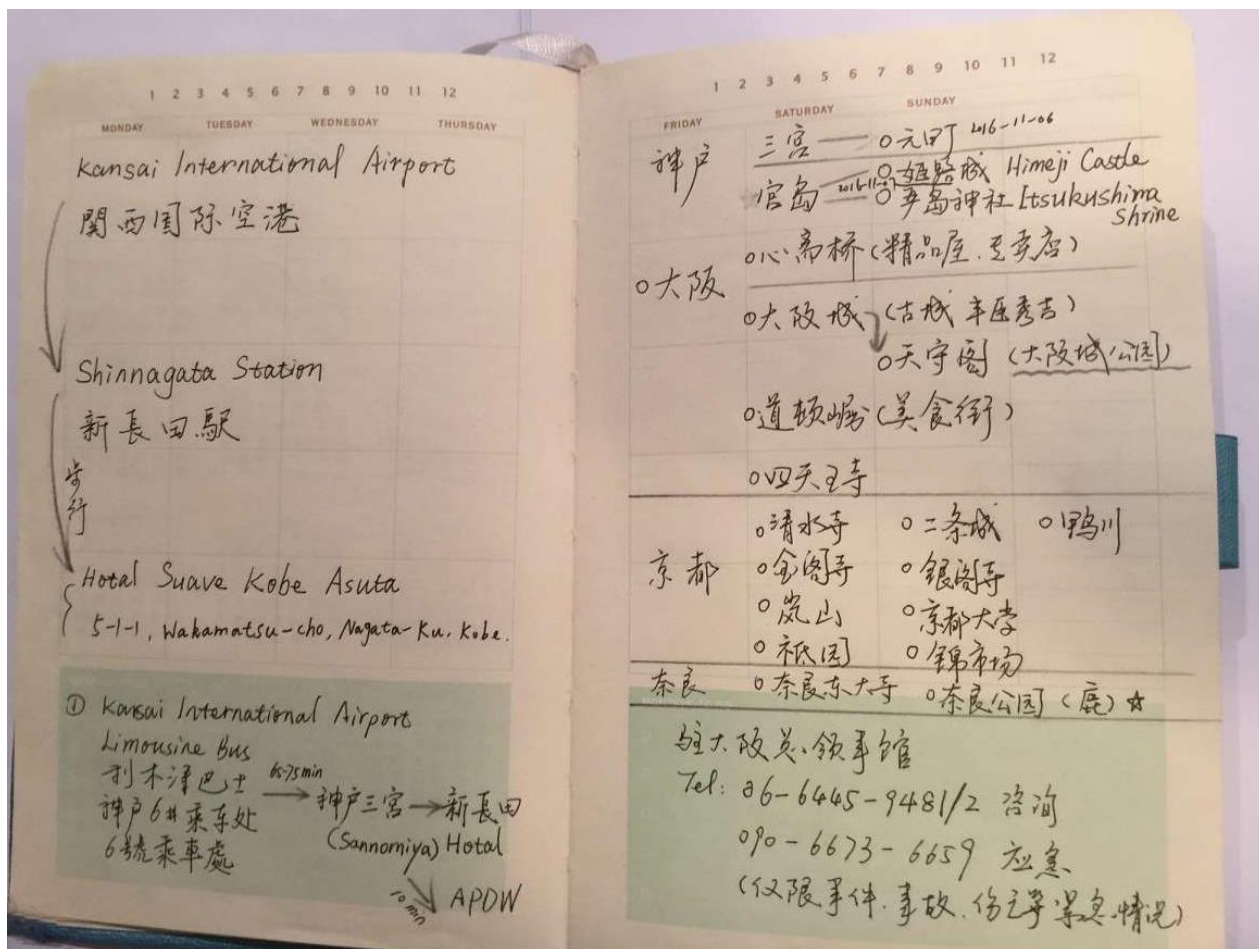 1 2 3 4 5 6 7 8 9 10 11 12
MONDAY TUESDAY WEDNESDAY THURSDAY
Kansai International Airport
関西国际空港
Shinnagata Station
新長田駅
步行
Hotal Suave Kobe Asuta
5-1-1, Wakamatsu-cho, Nagata-Ku, Kobe.
① Kansai International Airport
Limousine Bus
利木津巴士
神戸6#乘车处
6號乘車處
65-75min
神戸三宮 → 新長田
(Sannomiya) Hotal
10 min
APDW
1 2 3 4 5 6 7 8 9 10 11 12
FRIDAY SATURDAY SUNDAY
神户 三宮 — 元町 2016-11-06
姬路城 Himeji Castle
宫岛 — 严岛神社 Itsukushima Shrine
大阪 心斋桥(精品屋、专卖店)
大阪城 (古城 丰臣秀吉)
天守阁 (大阪城公园)
道顿崛(美食街)
四天王寺
京都 清水寺 二条城 鸭川
金阁寺 银阁寺
岚山 京都大学
祇园 锦市场
奈良 奈良东大寺 奈良公园(鹿)☆
驻大阪总领事馆
Tel: 06-6445-9481/2 咨询
090-6673-6659 应急
(仅限事件、事故、伤亡等紧急情况)